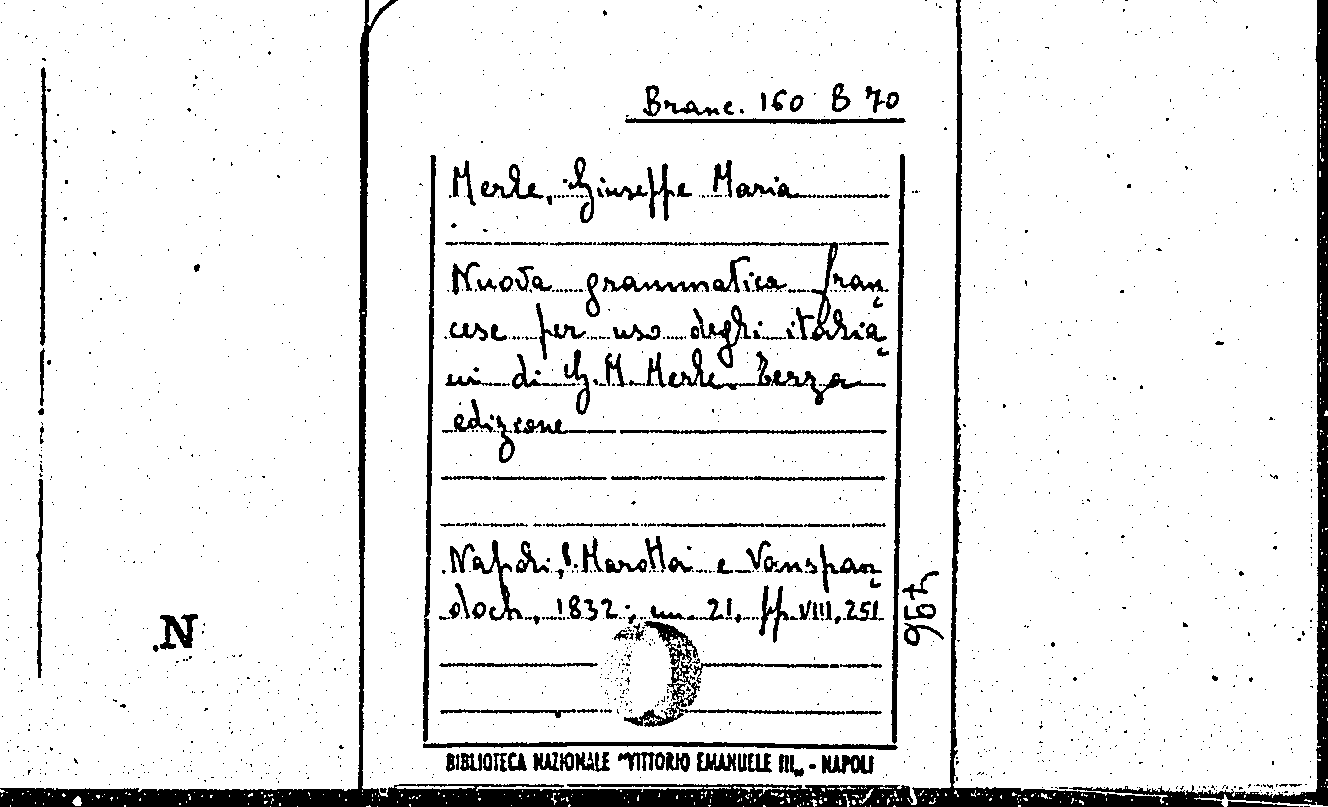 Branc. 160 B 70
Merle, Giuseppe Maria
Nuova grammatica fran-
cese per uso degli italia-
ni di G. M. Merle. Terza
edizione
Napoli, Marotta e Vanspan-
doch, 1832; in 21, pp. VIII, 251
496
.N
BIBLIOTECA NAZIONALE "VITTORIO EMANUELE III„ - NAPOLI